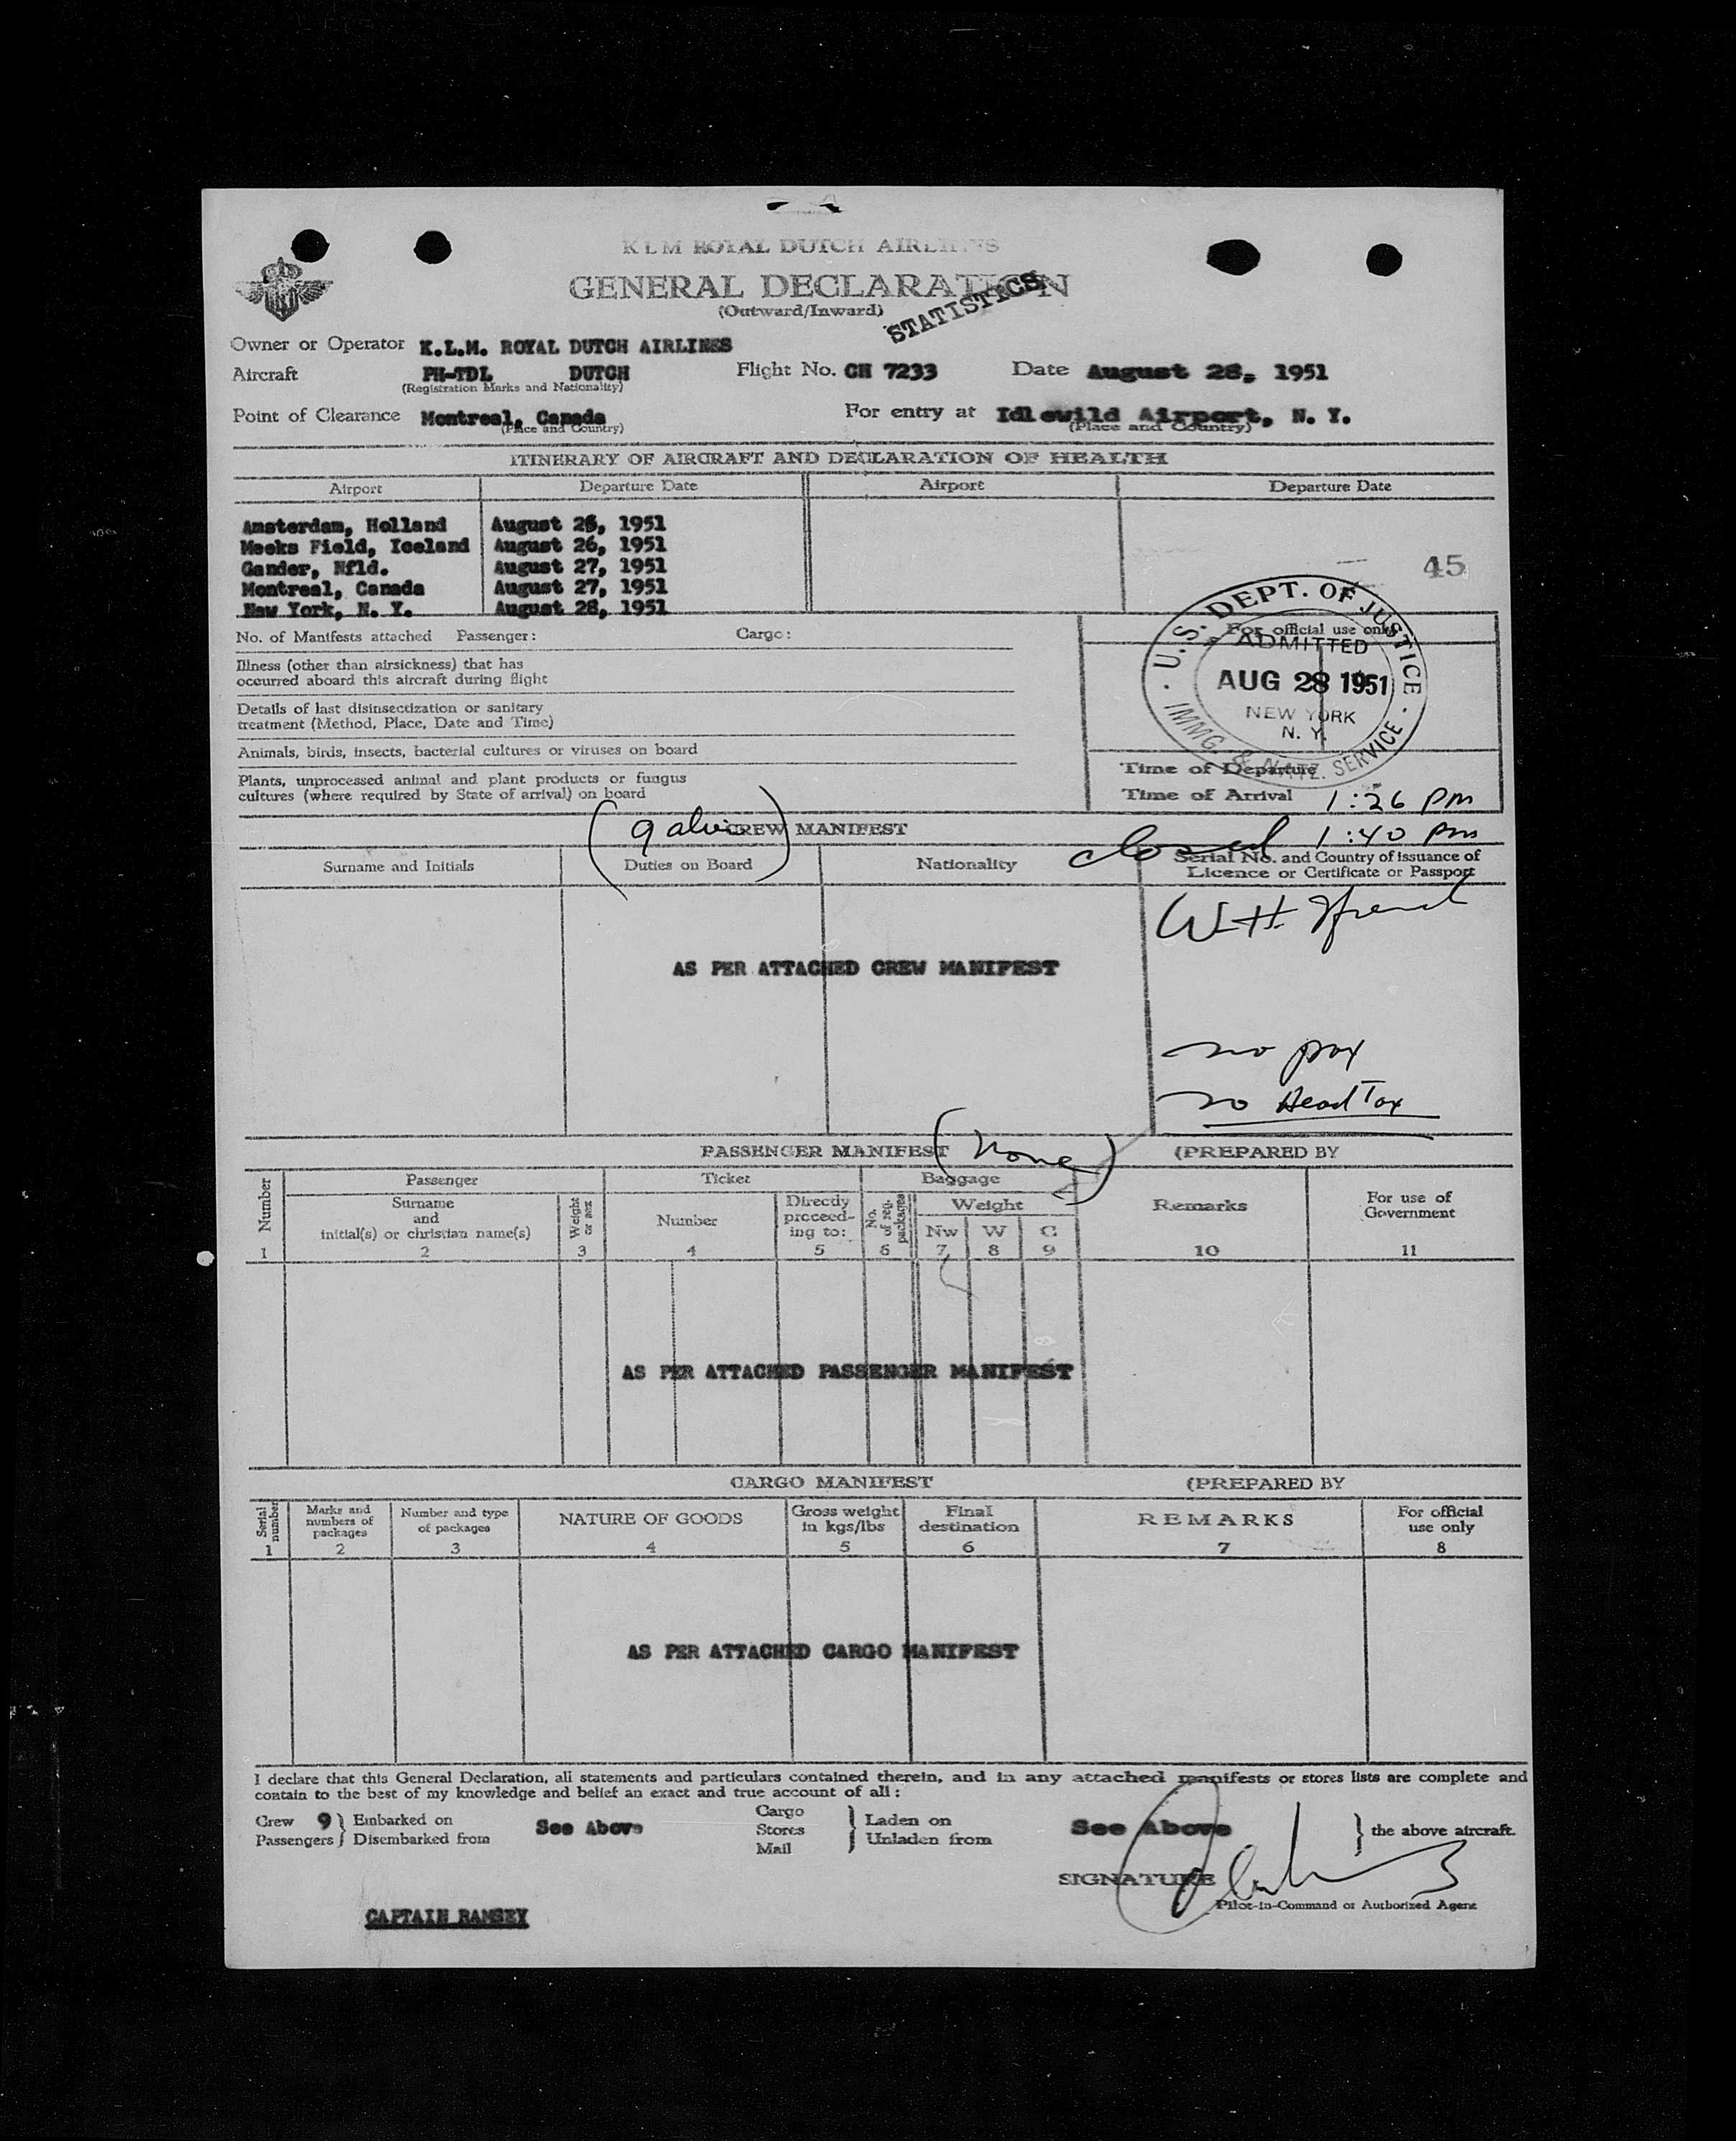 KLM ROYAL DUTCH AIRLINES
GENERAL DECLARATION
(Outward/Inward)
STATISTICS
Owner or Operator K.L.M. ROYAL DUTCH AIRLINES
Aircraft PH-TDL DUTCH Flight No. CH 7233 Date August 28, 1951
(Registration Marks and Nationality)
Point of Clearance Montreal, Canada For entry at Idlewild Airport, N. Y.
(Place and Country) (Place and Country)
ITINERARY OF AIRCRAFT AND DECLARATION OF HEALTH
Airport Departure Date Airport Departure Date
Amsterdam, Holland August 26, 1951
Meeks Field, Iceland August 26, 1951
Gander, Nfld. August 27, 1951
Montreal, Canada August 27, 1951
New York, N. Y. August 28, 1951
45
No. of Manifests attached Passenger: Cargo:
For official use only
U.S. DEPT. OF JUSTICE
ADMITTED
AUG 28 1951
NEW YORK
N. Y.
IMMG. & NATZ. SERVICE
Illness (other than airsickness) that has
occurred aboard this aircraft during flight
Details of last disinsectization or sanitary
treatment (Method, Place, Date and Time)
Animals, birds, insects, bacterial cultures or viruses on board
Plants, unprocessed animal and plant products or fungus
cultures (where required by State of arrival) on board
Time of Departure
Time of Arrival 1:26 PM
(9 CREW MANIFEST
closed 1:40 pm
Surname and Initials Duties on Board Nationality Serial No. and Country of issuance of
Licence or Certificate or Passport
AS PER ATTACHED CREW MANIFEST
no pax
no Head Tax
PASSENGER MANIFEST (None) (PREPARED BY
Number Passenger Ticket Baggage Remarks For use of
Government
Surname
and
initial(s) or christian name(s)
Weight
or sex
Number
Directly
proceed-
ing to:
No.
of reg.
packages
Weight
Nw W C
1 2 3 4 5 6 7 8 9 10 11
AS PER ATTACHED PASSENGER MANIFEST
CARGO MANIFEST (PREPARED BY
Serial
number
Marks and
numbers of
packages
Number and type
of packages
NATURE OF GOODS
Gross weight
in kgs/lbs
Final
destination
REMARKS
For official
use only
1 2 3 4 5 6 7 8
AS PER ATTACHED CARGO MANIFEST
I declare that this General Declaration, all statements and particulars contained therein, and in any attached manifests or stores lists are complete and
contain to the best of my knowledge and belief an exact and true account of all:
Crew 9 } Embarked on
Passengers } Disembarked from
See Above
Cargo
Stores
Mail
} Laden on
Unladen from
See Above } the above aircraft.
SIGNATURE
Pilot-in-Command or Authorized Agent
CAPTAIN RAMSEY